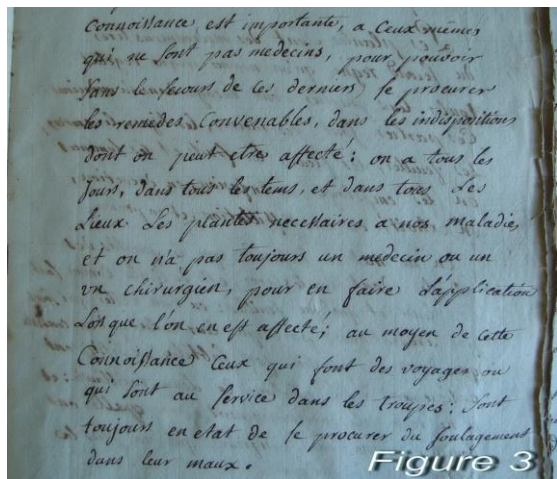 Connoissance est importante, a Ceux mêmes
qui ne Sont pas medecins, pour pouvoir
Sans le secours de ces derniers se procurer
les remedes Convenables, dans les indispositions
dont on peut etres affecté : on a tous les
Jours, dans tous les tems, et dans tous Les
Lieux Les plantes necessaires a nos maladies,
et on n'a pas toujours un medecin ou un
vn chirurgien, pour en faire L'application
Lorsque l'on en est affecté ; au moyen de cette
Connoissance Ceux qui font des voyages ou
qui Sont au Service dans les troupes : Sont
toujours en etat de se procurer du soulagement
dans leur maux.
Figure 3